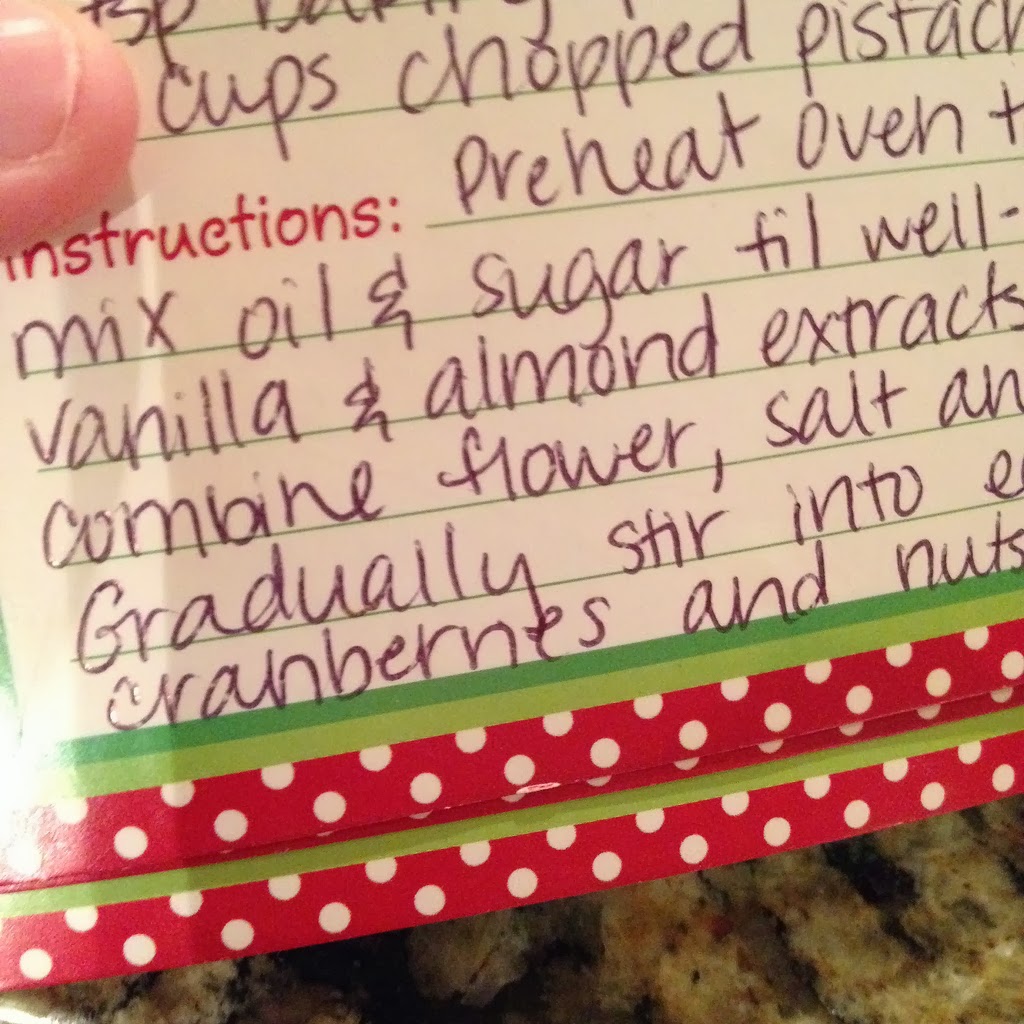 tsp baking
cups chopped pistach
Preheat oven t
Instructions:
mix oil & sugar til well-
vanilla & almond extracts
combine flower, salt an
Gradually stir into e
cranberries and nuts